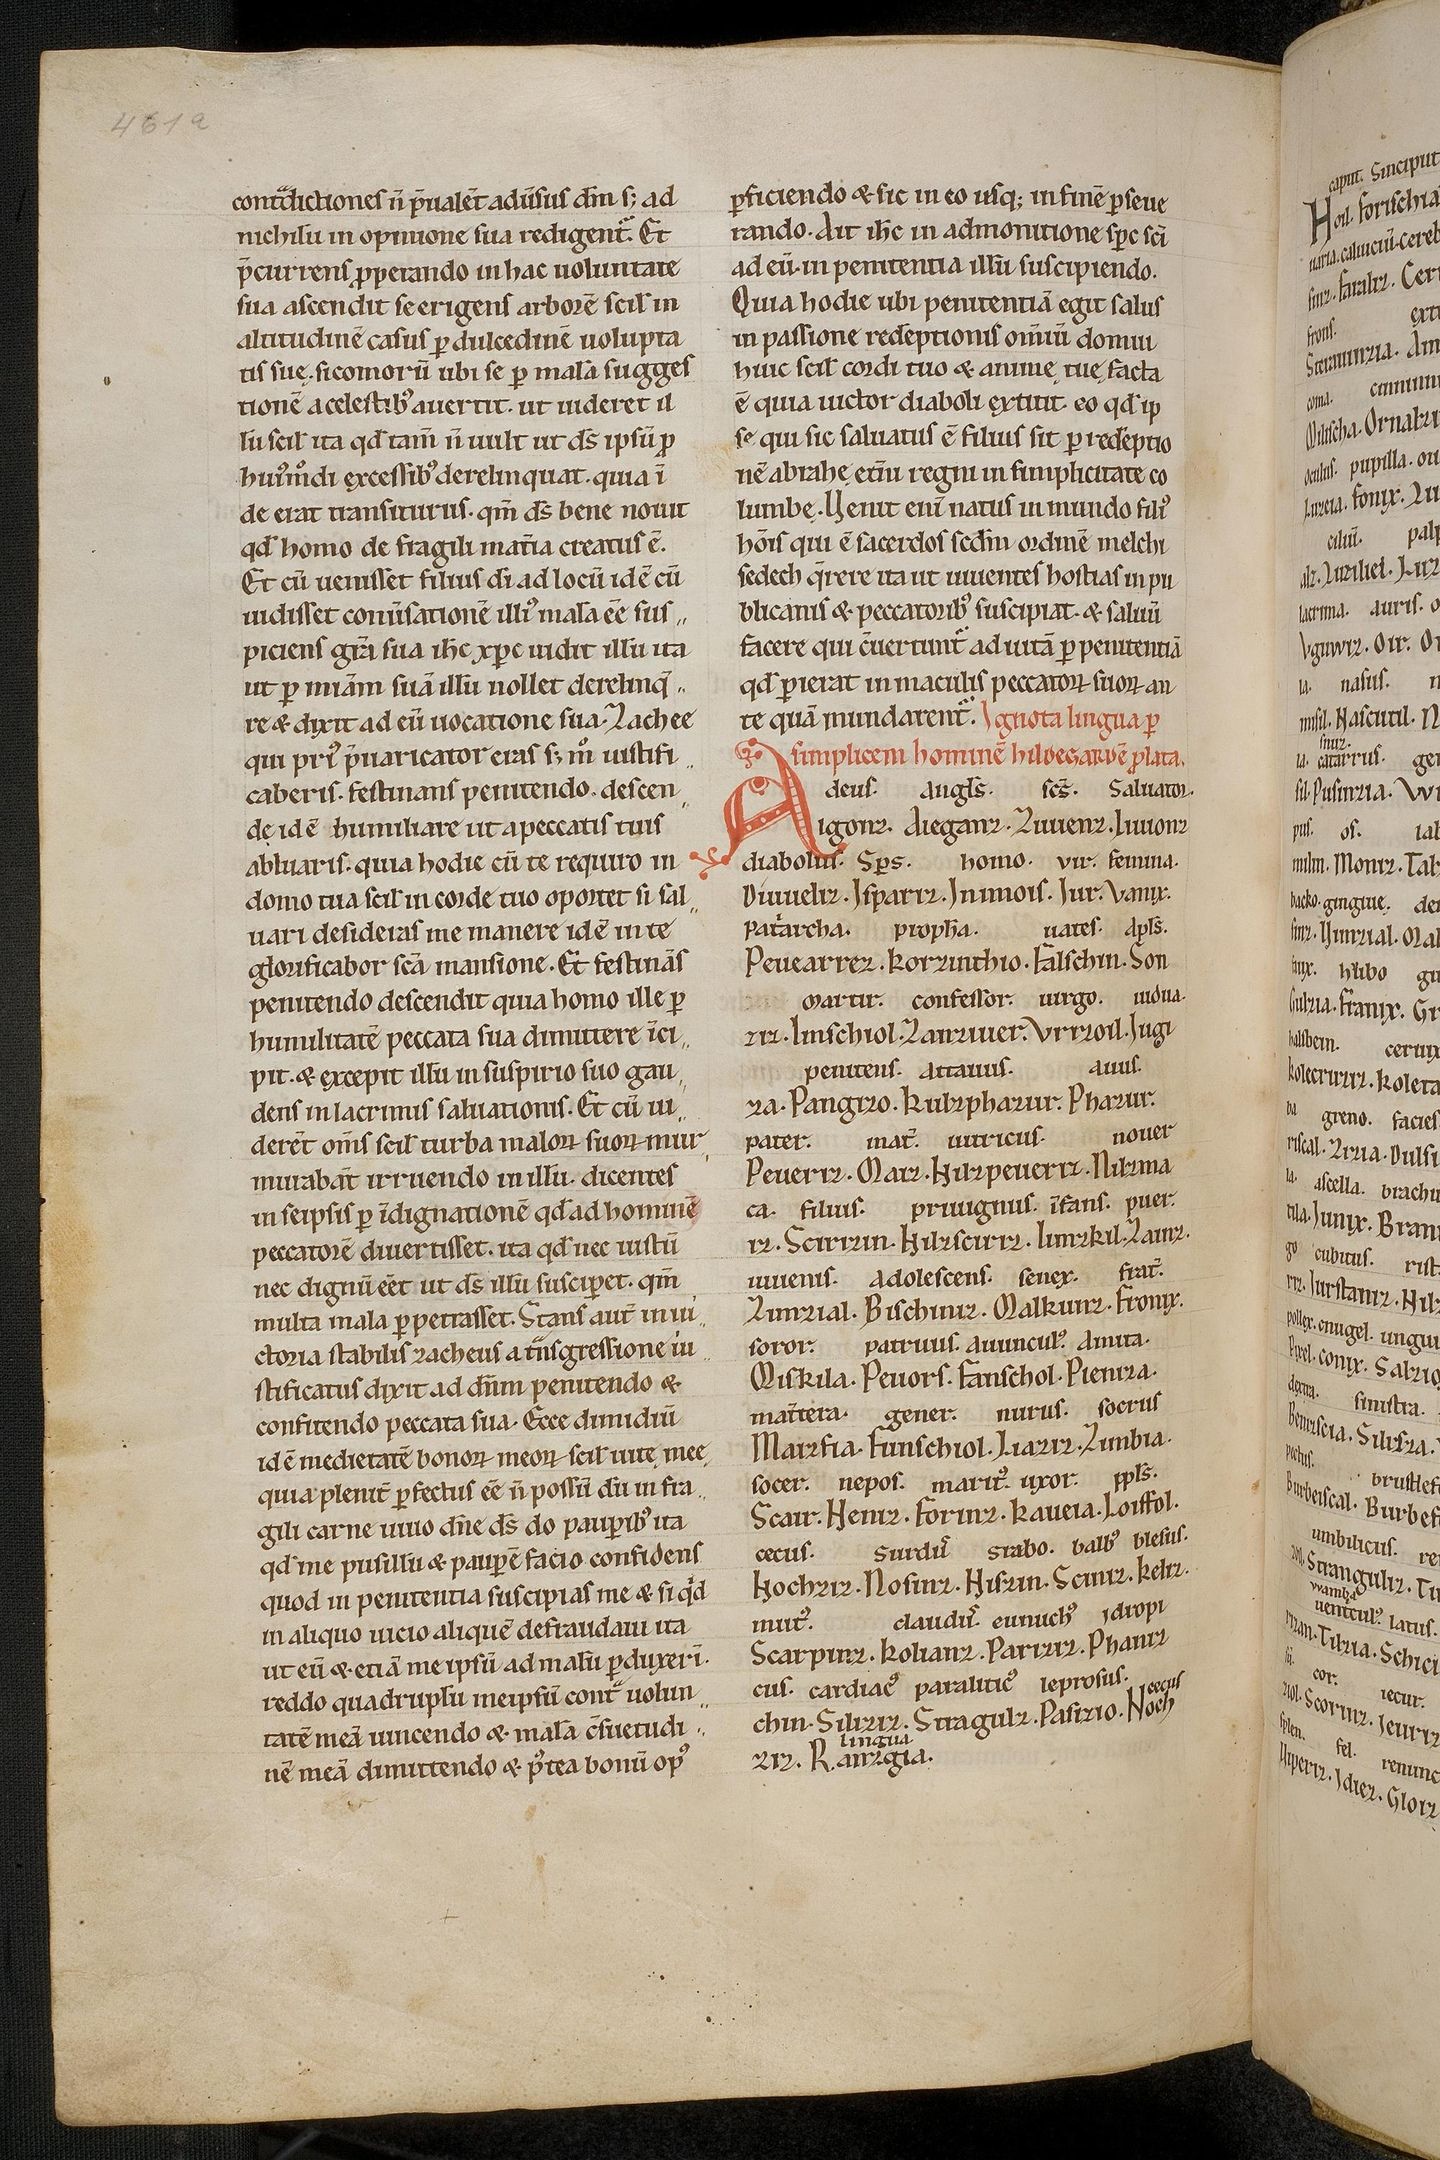 4619
contᷓdictiones n̄ p̄ualēt adūsus dm̄ s; ad
nichilū in opinione sua redigent᷑. Et
p̄currens ꝓperando in hac uoluntate
sua ascendit se erigens arborē scil in
altitudinē casus ꝑ dulcedinē uolupta
tis suę. sicomorū ubi se ꝑ mala sugges
tionē a celestibꝰ auertit. ut uideret il
lū scil ita qd tam̄ n̄ uult ut ds̄ ipsū ꝑ
huiꝰ mdi excessibꝰ derelinquat. quia ī
de erat transiturus. qm̄ ds̄ bene nouit
qd homo de fragili mat̄ia creatus ē.
Et cū uenisset filius di ad locū idē cū
uidisset conūsationē illiꝰ mala eē sus
piciens gr̄a sua ih̄c xp̄c uidit illū ita
ut ꝑ miām suā illū nollet derelinq̄
re & dixit ad eū uocatione sua. Zachee
qui priꝰ p̄uaricator eras s; mͦ iustifi
caberis. festinans penitendo. descen
de idē humiliare ut a peccatis tuis
abluaris. quia hodie cū te requiro in
domo tua scil in corde tuo oportet si sal
uari desideras me manere idē in te
glorificabor scā mansione. Et festinās
penitendo descendit quia homo ille ꝑ
humilitatē peccata sua dimittere īci
pit. & excepit illū in suspirio suo gau
dens in lacrimis saluationis. Et cū ui
derēt om̄s scil turba maloꝝ suoꝝ mur
murabāt irruendo in illū. dicentes
in seipsis ꝑ īdignationē qd ad hominē
peccatorē diuertisset. ita qd nec iustū
nec dignū eēt ut ds̄ illū suscipet. qm̄
multa mala ꝑpetrasset. Stans aut̄ in ui
ctoria stabilis zacheus a tᷓnsgressione iu
stificatus dixit ad dn̄m penitendo &
confitendo peccata sua. Ecce dimidiū
idē medietatē bonoꝝ meoꝝ scil uitę meę
quia plenit̄ ꝑfectus eē n̄ possū dū in fra
gili carne uiuo dn̄e ds̄ do pauꝑibꝰ ita
qd me pusillū & pauꝑē facio confidens
quod in penitentia suscipias me & si qͥd
in aliquo uicio aliquē defraudaui ita
ut eū & etiā me ipsū ad malū ꝑduxerī.
reddo quadruplū meipsū contᷓ uolun
tatē meā uincendo & mala c̄suetudi
nē meā dimittendo & pꝰtea bonū opꝰ
ꝑficiendo & sic in eo usq; in finē ꝑseue
rando. Ait ih̄c in admonitione sp̄c sc̄i
ad eū. in penitentia illū suscipiendo.
Quia hodie ubi penitentiā egit salus
in passione redēptionis om̄iū domui
huic scil cordi tuo & animę tuę facta
ē quia uictor diaboli extitit. eo qd ip
se qui sic saluatus ē filius sit ꝑ redēptio
nē abrahę. etiū regni in simplicitate co
lumbę. Uenit eni natus in mundo filiꝰ
hōis qui ē sacerdos scdm ordinē melchi
sedech q̄rere ita ut uiuentes hostias in pu
blicanis & peccatoribꝰ suscipiat. & saluū
facere qui c̄uertunt᷑ ad uitā ꝑ penitentiā
qd ꝑierat in maculis peccatoꝝ suoꝝ an
te quā mundarent᷑. Ignota lingua ꝑ
simplicem hominē hildegardē ꝓlata.
deus. angls̄. sc̄s. Saluator.
Aigonz. Aieganz. Zuuenz. Liuionz
diabolus. Sp̄s. homo. vir. femina.
Diuueliz. Isparriz. Inimois. Jur. Vanix.
patarcha. propha. uates. apls̄.
Peuearrez. Korzinthio. Falschin. Son
martir. confessor. uirgo. uidua.
ziz. Linschiol. Zanziuer. Vrrzoil. Jugi
penitens. attauus. auus.
za. Pangizo. Kulzphazur. Phazur.
pater. mat̄. uitricus. nouer
Peueriz. Maiz. Hilzpeueriz. Nilzma
ca. filius. priuignus. īfans. puer.
iz. Scirizin. Hilzscifriz. Limzkil. Zainz.
iuuenis. adolescens. senex. frat̄.
Zunzial. Bischiniz. Malkunz. Fronix.
soror. patruus. auunculꝰ. Amita.
Miskila. Peuors. Fanschol. Pieniza.
mat̄tera. gener. nurus. socrus
Maizfia. Funschiol. Liaziz. Zimbia.
socer. nepos. maritꝰ. uxor. ppls̄.
Scair. Heniz. Forinz. Kaueia. Loiffol.
cecus. Surdꝰ strabo. balbꝰ blesus.
Hochziz. Nosinz. Hiszin. Sciniz. Kelriz.
mutꝰ. claudꝰ. eunuchꝰ ydropi
Scarpinz. Kolianz. Pariziz. Phaniz
cus. cardiacꝰ paraliticꝰ leprosus. cecus
chin. Siliziz. Stragulz. Pasizio. Noch
lingua
ziz. Ranzgia.
caput. Sinciput
Hoil. Forischia
frons.
coma.
oculus. pupilla.
Luzeia. Fonix.
lacrima. auris.
nasus.
catarrus.
pus. os.
gingiue.
facies
ascella. brachiu
cubitus.
dextra. sinistra.
pectus.
umbilicus.
wamba
cor. iecur.
splen. fel.